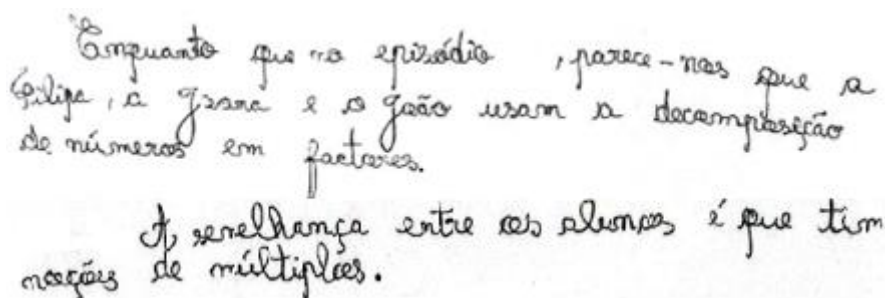 Enquanto que no episódio , parece-nos que a
Filipa, a Joana e o João usam a decomposição
de números em factores.
A semelhança entre os alunos é que têm
noções de múltiplos.